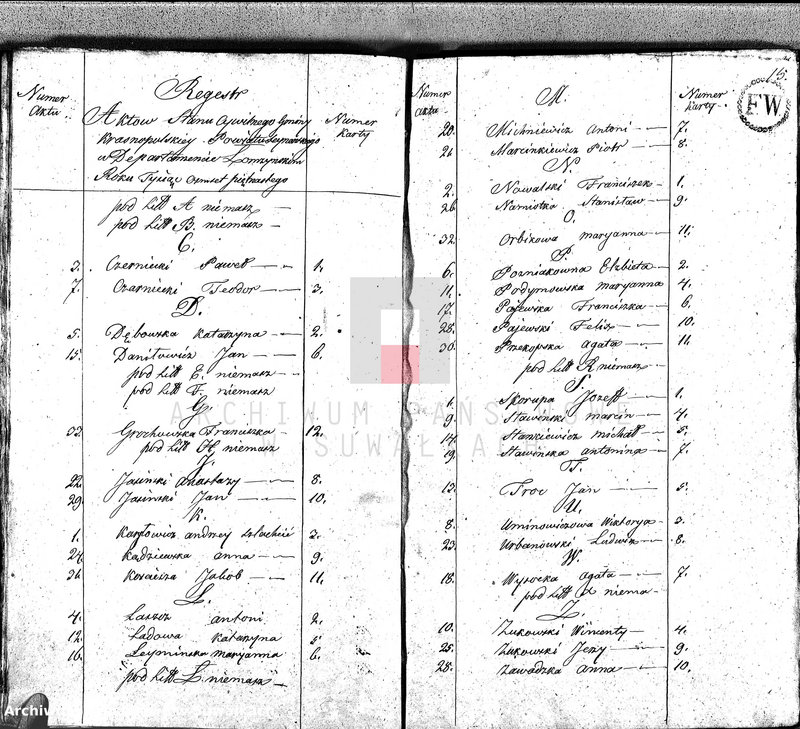 Numer Aktu
Regestr
Aktow Stanu Cywilnego Gminy
Krasnopolskiey Powiatu Seynenskiego
w Departamencie Łomżynskim
Roku Tysiąc Osmset piętnastego
Numer Karty
pod Litt A niemasz
pod Litt B. niemasz
C.
3. Czerniecki Paweł 1.
7. Czarniecki Teodor 3.
D.
5. Dębowska Katarzyna 2.
15. Daniłowicz Jan 6.
pod Litt E. niemasz
pod Litt F. niemasz
G.
33. Grochowska Franciszka 12.
pod Litt H. niemasz
J.
22. Jasinski Anastazy 8.
29. Jasinski Jan 10.
K.
1. Karłowicz Andrzey Szlachcic
24. Kądziewska Anna 9.
31. Kosacisza Jakob 11.
L.
4. Laszcz Antoni 2.
12. Ladowa Katarzyna 5
16. Leyminska Maryanna 6.
pod Litt Ł. niemasz
15.
FW
Numer Aktu
M.
Numer Karty
20. Michniewicz Antoni 7.
21. Marcinkiewicz Piotr 8.
N.
2. Nowalski Franciszek 1.
26. Namiotka Stanisław 9.
O.
32. Orbikowa Maryanna 11.
P.
6. Pozniakowna Elżbieta 2.
11. Podymowska Maryanna 4.
17. Pajewska Franciszka 6.
28. Pajewski Felix 10.
30. Przekopska Agata 11.
pod Litt R niemasz
S.
1. Skorupa Jozeff 1.
9. Sławinski Marcin 4.
14. Stankiewicz Michał 5.
19. Sławinska Antonina 7.
T.
13. Troc Jan 5.
U.
8. Uminowiczowa Wiktorya 3.
23. Urbanowski Ludwik 8.
W.
18. Wysocka Agata 7.
pod Litt X niema
Z.
10. Zukowski Wincenty 4.
25. Zukowski Jerzy 9.
28. Zawadzka Anna 10.
ARCHIWUM PAŃSTWOWE
W SUWAŁKACH
Archiw